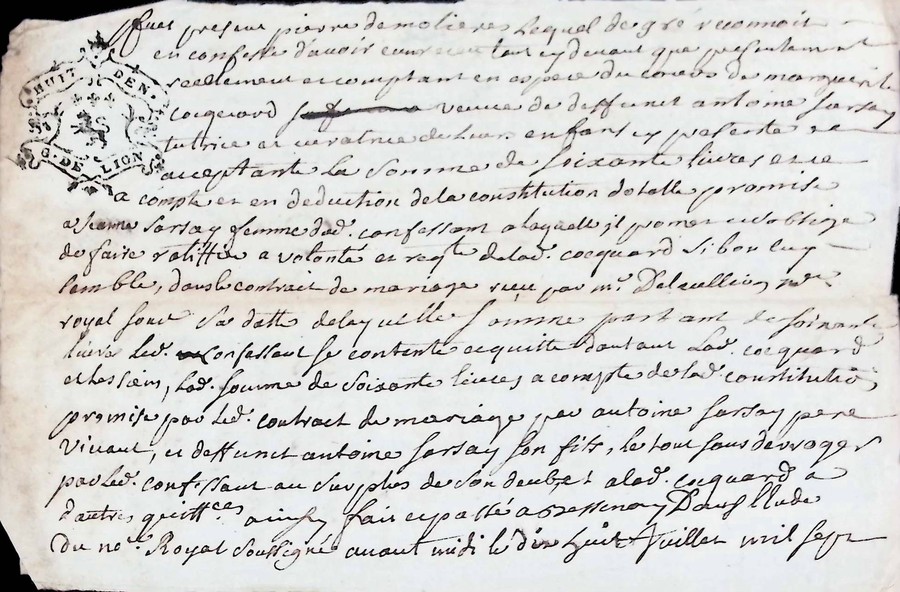 HUIT DEN.
G. DE LION
fut present pierre demolieres lequel de gré reconnoit
en confesse d'avoir eu et receu tant cy devant que presentement
reellement et comptant en espece du cours de marguerite
cocquard veuve de deffunct antoine sarsay
tutrice et curatrice de leurs enfans cy presente et
acceptante la somme de soixante livres et ce
a compte et en deduction de la constitution dotalle promise
a Jeanne sarsay femme dud. confessant a laquelle il promet et s'oblige
de faire ratiffier a volonté et reqte de lad. cocquard si bon luy
semble, dans le contrat de mariage receu par me. no.re
royal sous sa datte de laquelle somme partant de soixante
livres led. confessant se contente et quitte d'autant lad. cocquard
et les siens, lad. somme de soixante livres a compte de lad. constitution
promise par led. contrat de mariage par antoine sarsay pere
vivant, et deffunct antoine sarsay son fils, le tout sans desroger
par led. confessant au surplus de son deub, et a lad. cocquard a
d'autres quitt.ces ainsy fait et passé a Bessenay Dans l'Etude
Du no.e Royal soussigné avant midi le dix huit Juillet mil sept